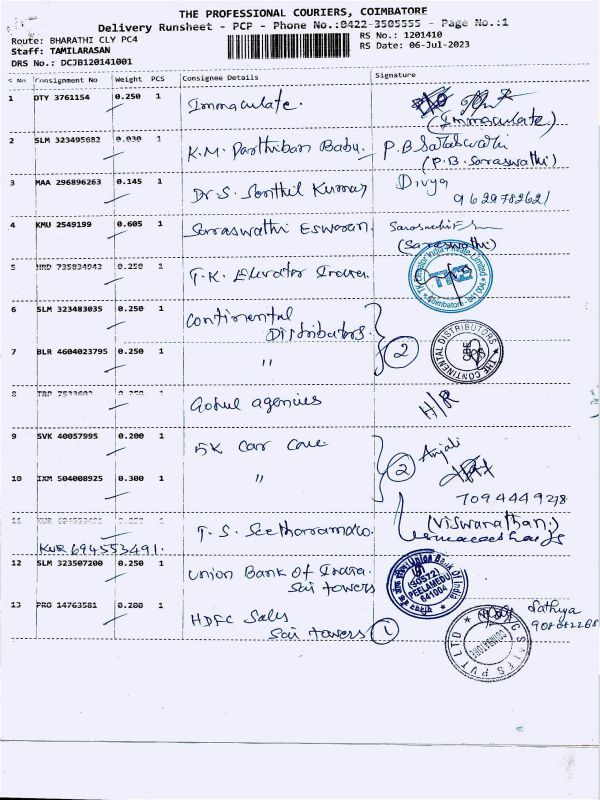 THE PROFESSIONAL COURIERS, COIMBATORE
Delivery Runsheet - PCP - Phone No.:0422-3505555 - Page No.:1
Route: BHARATHI CLY PC4
Staff: TAMILARASAN
DRS No.: DCJB120141001
RS No.: 1201410
RS Date: 06-Jul-2023
S No Consignment No Weight PCS Consignee Details Signature
1 DTY 3761154 0.250 1 Immaculate.
(Immaculate)
2 SLM 323495682 0.030 1 K.M. Parthiban Babu. P.B Saraswathi
(P.B. Saraswathi)
3 MAA 296896263 0.145 1 Dr. S. Senthil Kumar Divya
9629782621
4 KMU 2549199 0.605 1 Saraswathi Eswaran.
(Saraswathi)
5 HRD 735834943 0.250 1 T.K. Elevator India.
TK Elevator India Private Limited
TKE
Coimbatore - 641004
6 SLM 323483035 0.250 1 Continental
Distributors.
7 BLR 4604023795 0.250 1 " 2
THE CONTINENTAL DISTRIBUTORS
CBE
8 0.250 1 Gokul agencies H/R
9 SVK 40057995 0.200 1 5K Car Care Anjali
10 IXM 504008925 0.300 1 " 2
7094449278
11 1 T. S. Seetharaman. (Viswanathan)
KUR 694553491.
12 SLM 323507200 0.250 1 Union Bank of India.
Sai towers
Union Bank of India
(50572)
PEELAMEDU
641004
13 PRO 14763581 0.200 1 HDFC Sales
Sai towers 1
Sathya
COIMBATORE
PVT LTD